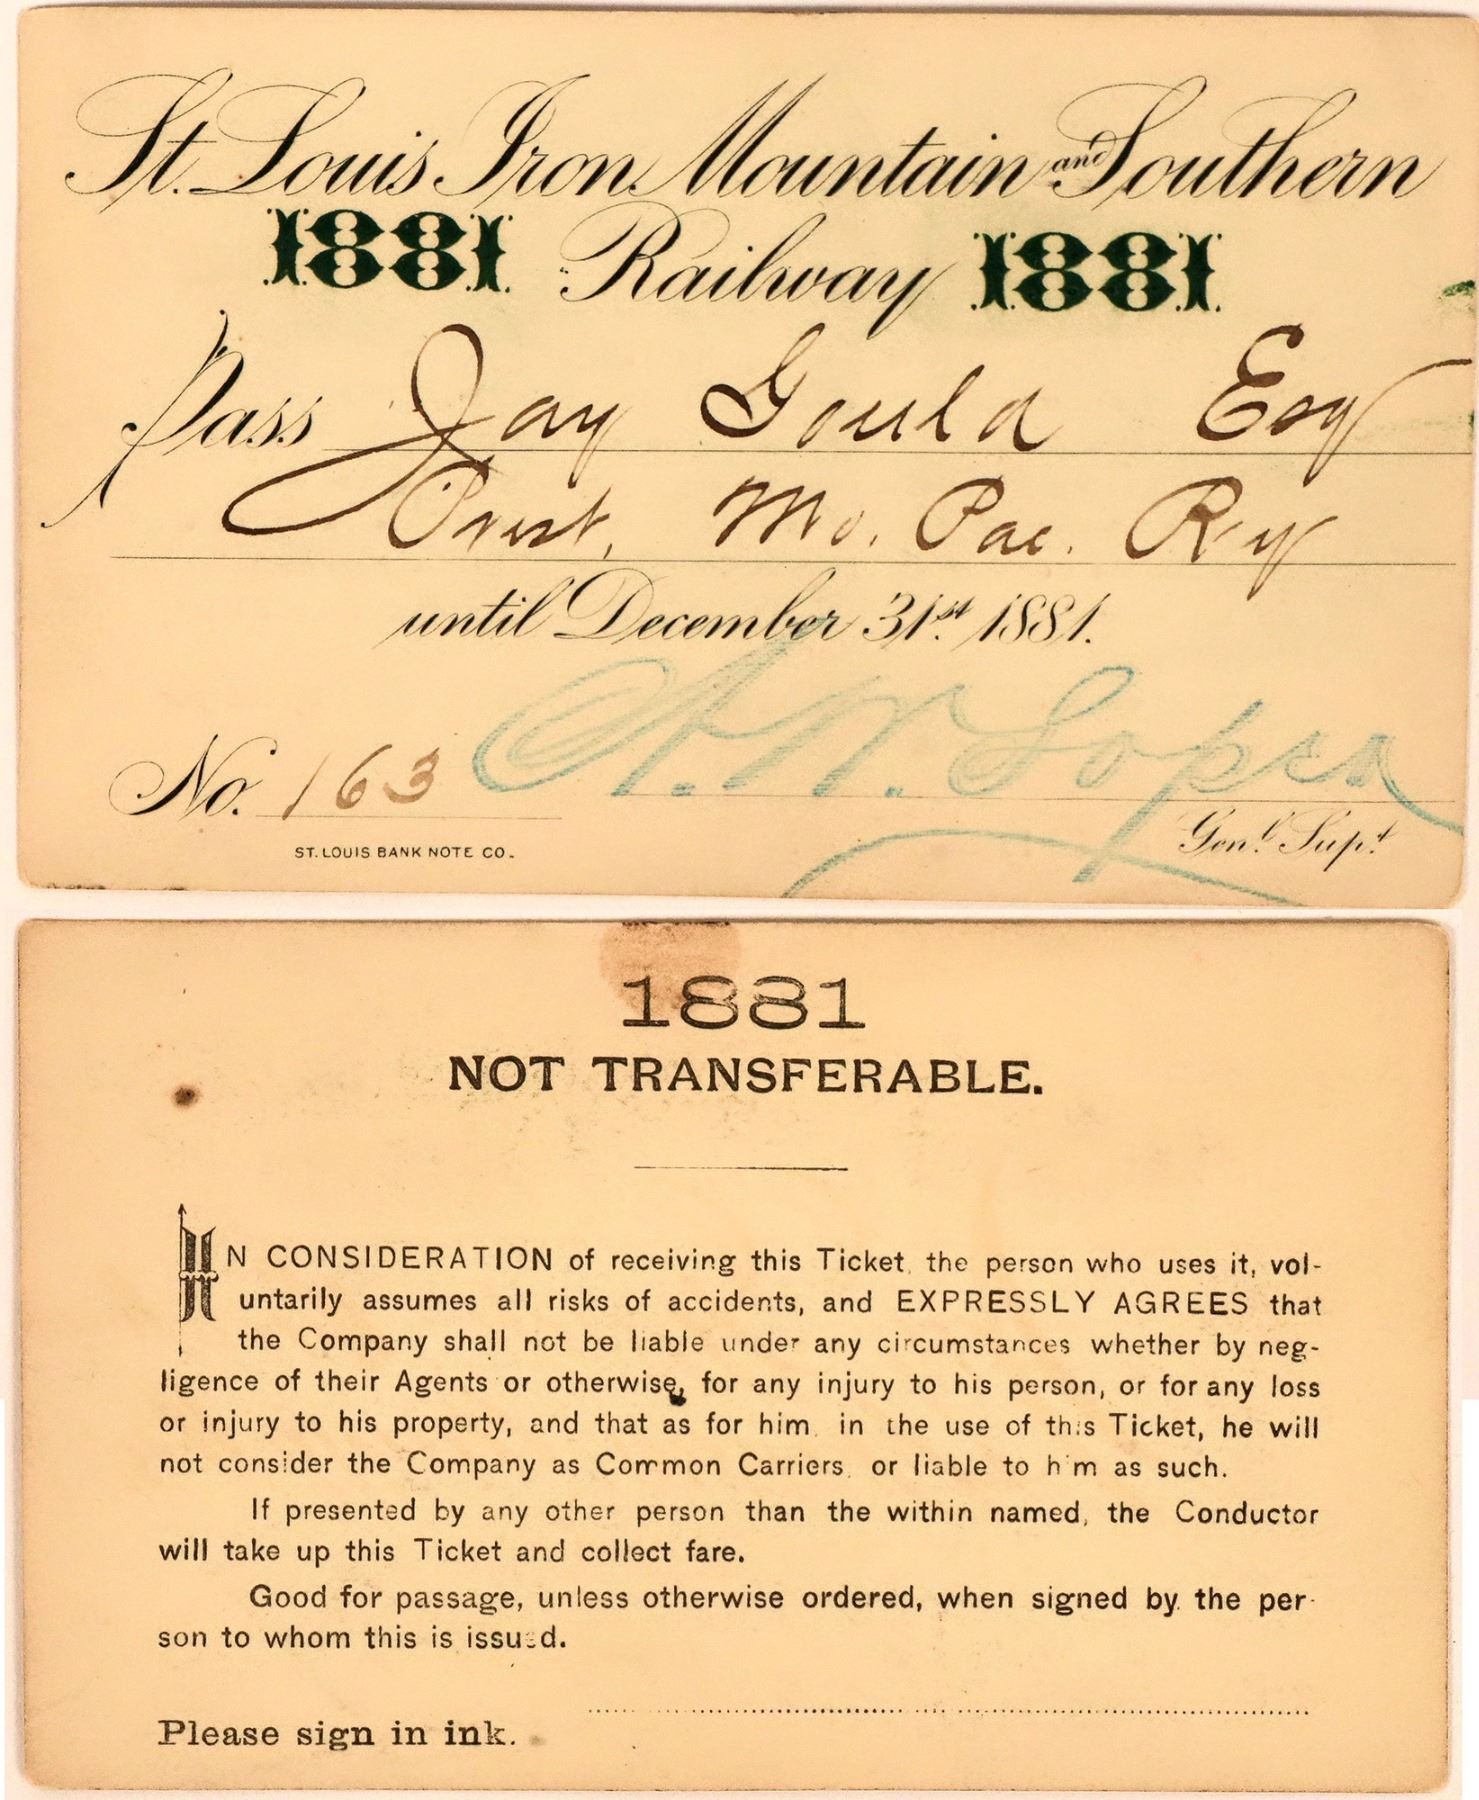 St. Louis Iron Mountain and Southern
1881 Railway 1881
Pass Jay Gould Esq
Prest. Mo. Pac. Ry
until December 31st 1881.
A. W. Soper
No. 163
Genl. Supt.
ST. LOUIS BANK NOTE CO.
1881
NOT TRANSFERABLE.
IN CONSIDERATION of receiving this Ticket, the person who uses it, vol-
untarily assumes all risks of accidents, and EXPRESSLY AGREES that
the Company shall not be liable under any circumstances whether by neg-
ligence of their Agents or otherwise, for any injury to his person, or for any loss
or injury to his property, and that as for him, in the use of this Ticket, he will
not consider the Company as Common Carriers, or liable to him as such.
If presented by any other person than the within named, the Conductor
will take up this Ticket and collect fare.
Good for passage, unless otherwise ordered, when signed by the per-
son to whom this is issued.
Please sign in ink.